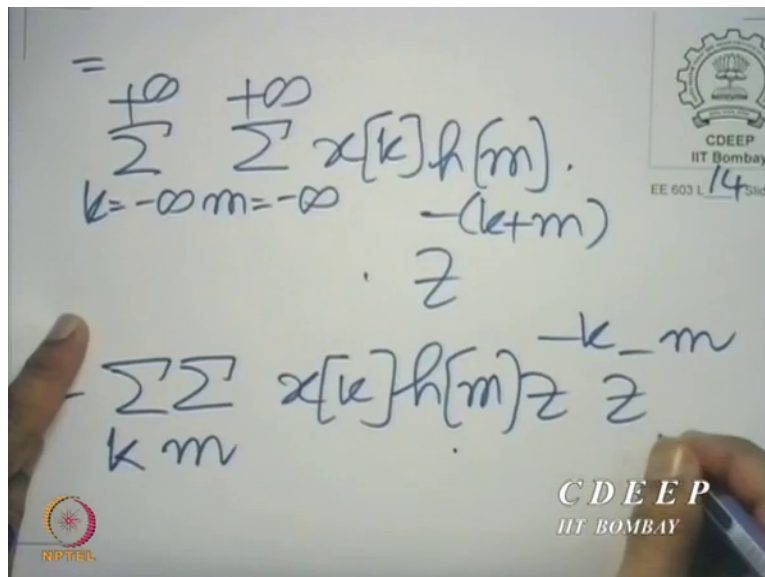 =
+∞ +∞
Σ Σ x[k] h[m].
k=-∞ m=-∞
-(k+m)
. z
- Σ Σ x[k] h[m] z^-k z^-m
k m
CDEEP
IIT Bombay
EE 603 L 14 Slid
CDEEP
IIT BOMBAY
NPTEL